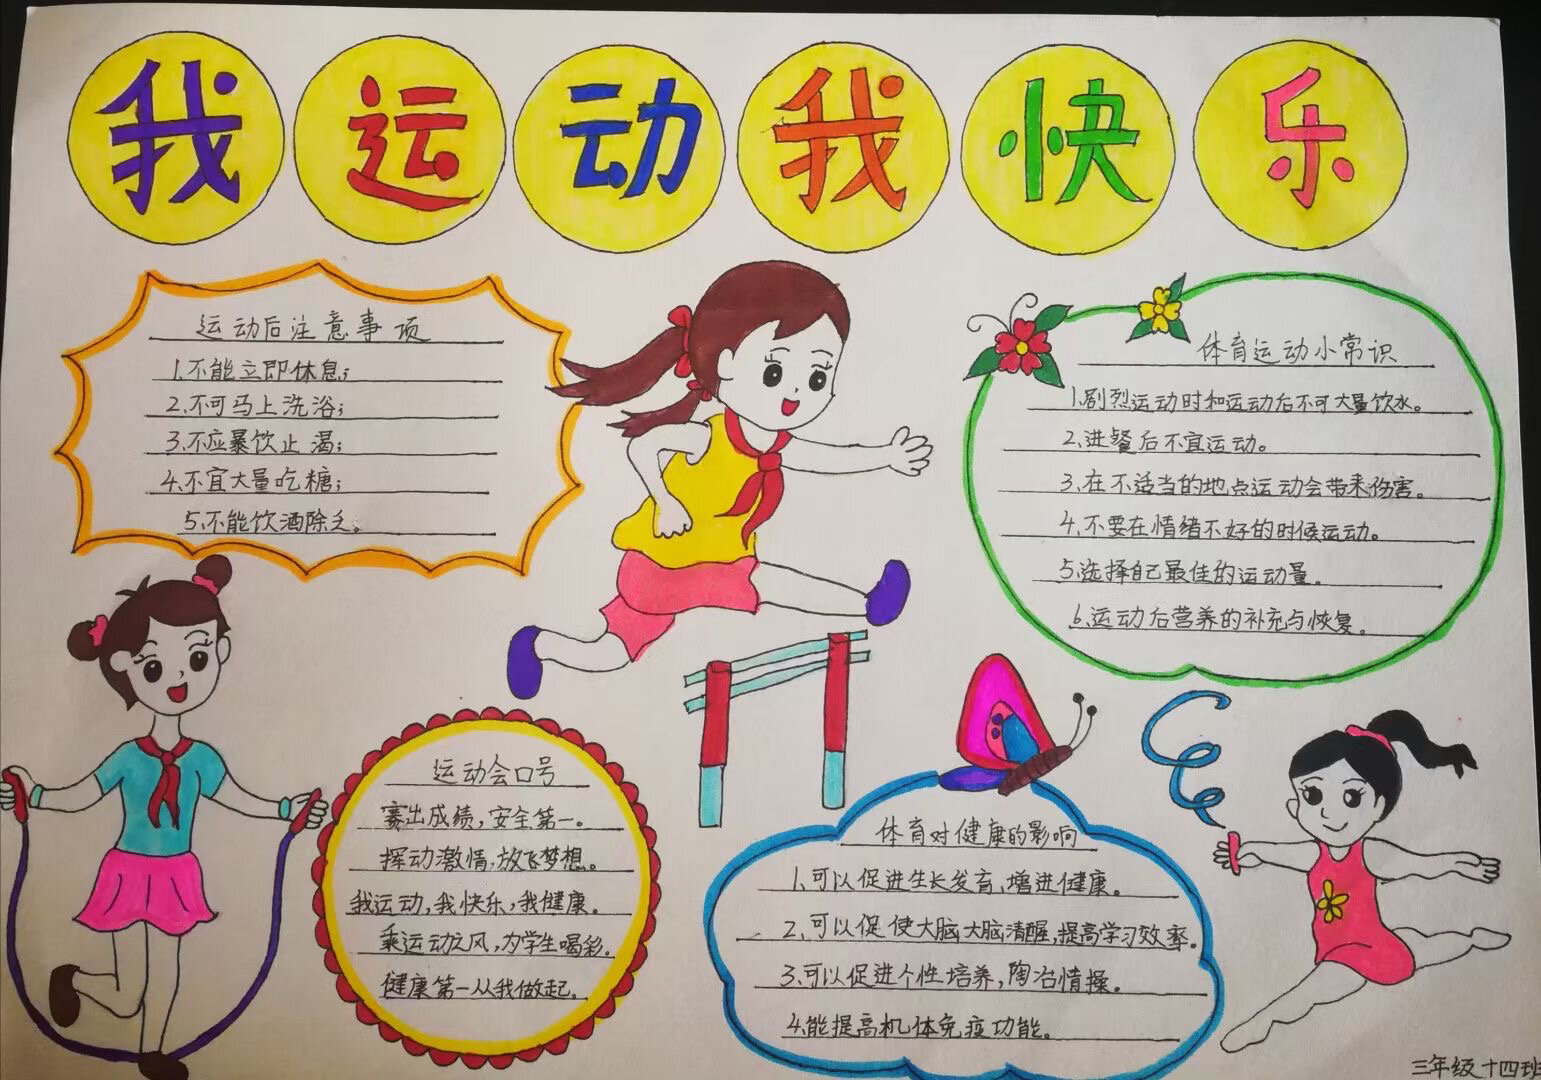 我运动我快乐
运动后注意事项
1.不能立即休息;
2.不可马上洗浴;
3.不应暴饮止渴;
4.不宜大量吃糖;
5.不能饮酒除乏。
体育运动小常识
1.剧烈运动时和运动后不可大量饮水。
2.进餐后不宜运动。
3.在不适当的地点运动会带来伤害。
4.不要在情绪不好的时候运动。
5.选择自己最佳的运动量。
6.运动后营养的补充与恢复。
运动会口号
赛出成绩,安全第一。
挥动激情,放飞梦想。
我运动,我快乐,我健康。
乘运动之风,为学生喝彩。
健康第一从我做起。
体育对健康的影响
1.可以促进生长发育,增进健康。
2.可以促使大脑大脑清醒,提高学习效率。
3.可以促进个性培养,陶冶情操。
4.能提高机体免疫功能。
三年级十四班